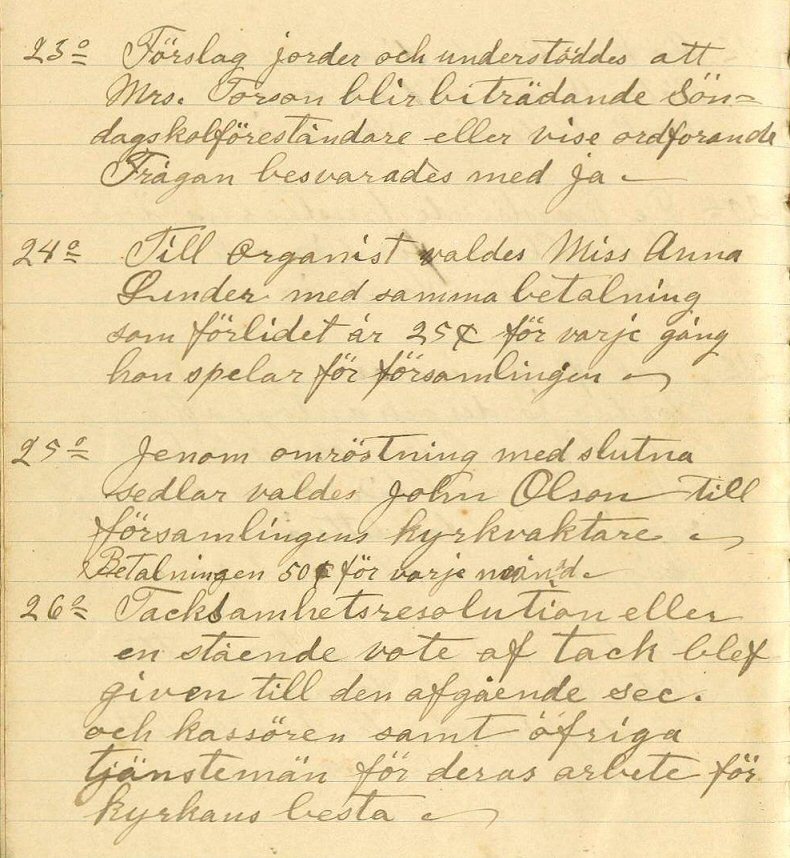 23o Förslag jordes och understöddes att
Mrs. Torson blir biträdande Sön=
dagskolföreståndare eller vise ordforande
Frågan besvarades med ja
24o Till organist valdes Miss Anna
Lunder med samma betalning
som förlidet år 25¢ för varje gång
hon spelar för församlingen
25o Jenom omröstning med slutna
sedlar valdes John Olson till
församlingens kyrkvaktare
Betalningen 50¢ för varje månd
26o Tacksamhetsresolution eller
en stående vote af tack blef
given till den afgående sec.
och kassören samt öfriga
tjänstemän för deras arbete för
kyrkans besta